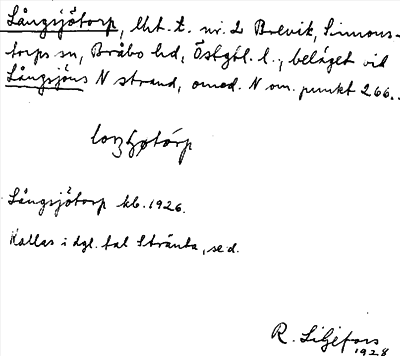 Långsjötorp, lht. t. nr. 2 Brevik, Simons-
torps sn, Bråbo hd, Östgöt. l., beläget vid
Långsjöns N strand, omed. N om. punkt 266.
Långsjötorp kb. 1926.
Kallas i dgl. tal Stränta, se d.
R. Liljefors
1928